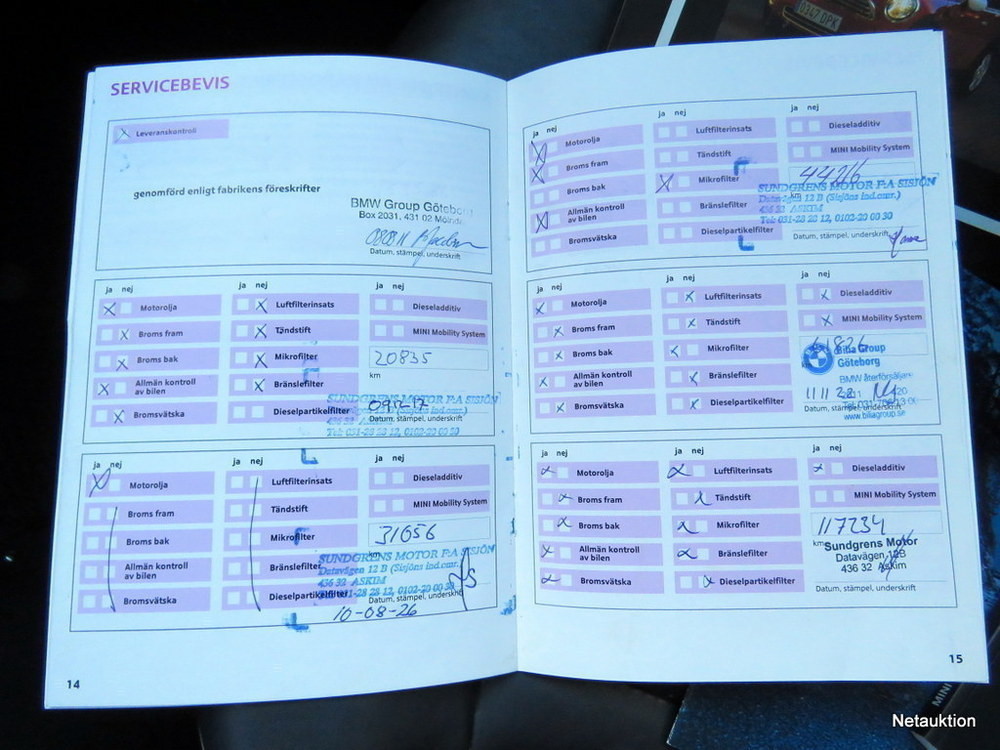 SERVICEBEVIS
Leveranskontroll
genomförd enligt fabrikens föreskrifter
BMW Group Göteborg
Box 2031, 431 02 Mölndal
Datum, stämpel, underskrift
ja nej
ja nej
ja nej
Motorolja
Luftfilterinsats
Dieseladditiv
Broms fram
Tändstift
MINI Mobility System
Broms bak
Mikrofilter
20835
km
Allmän kontroll
av bilen
Bränslefilter
SUNDGRENS MOTOR P:A SISJÖN
Datum, stämpel, underskrift
Bromsvätska
Dieselpartikelfilter
Tel: 031-28 28 12, 0102-20 00 30
ja nej
ja nej
ja nej
Motorolja
Luftfilterinsats
Dieseladditiv
Broms fram
Tändstift
MINI Mobility System
Broms bak
Mikrofilter
31656
km
SUNDGRENS MOTOR P:A SISJÖN
Datavägen 12 B (Sisjöns ind.omr.)
436 32 ASKIM
Allmän kontroll
av bilen
Bränslefilter
Datum, stämpel, underskrift
Bromsvätska
Dieselpartikelfilter
10-08-26
14
ja nej
ja nej
ja nej
Motorolja
Luftfilterinsats
Dieseladditiv
Broms fram
Tändstift
MINI Mobility System
Broms bak
Mikrofilter
44216
SUNDGRENS MOTOR P:A SISJÖN
Datavägen 12 B (Sisjöns ind.omr.)
436 32 ASKIM
Tel: 031-28 28 12, 0102-20 00 30
Allmän kontroll
av bilen
Bränslefilter
Bromsvätska
Dieselpartikelfilter
Datum, stämpel, underskrift
ja nej
ja nej
ja nej
Motorolja
Luftfilterinsats
Dieseladditiv
Broms fram
Tändstift
MINI Mobility System
Broms bak
Mikrofilter
Bilia Group
Göteborg
BMW återförsäljare
Allmän kontroll
av bilen
Bränslefilter
11 11 28
Bromsvätska
Dieselpartikelfilter
Datum, stämpel, underskrift
www.biliagroup.se
ja nej
ja nej
ja nej
Motorolja
Luftfilterinsats
Dieseladditiv
Broms fram
Tändstift
MINI Mobility System
Broms bak
Mikrofilter
117234
km
Sundgrens Motor
Datavägen 12B
436 32 Askim
Allmän kontroll
av bilen
Bränslefilter
Bromsvätska
Dieselpartikelfilter
Datum, stämpel, underskrift
15
MINI
Netauktion